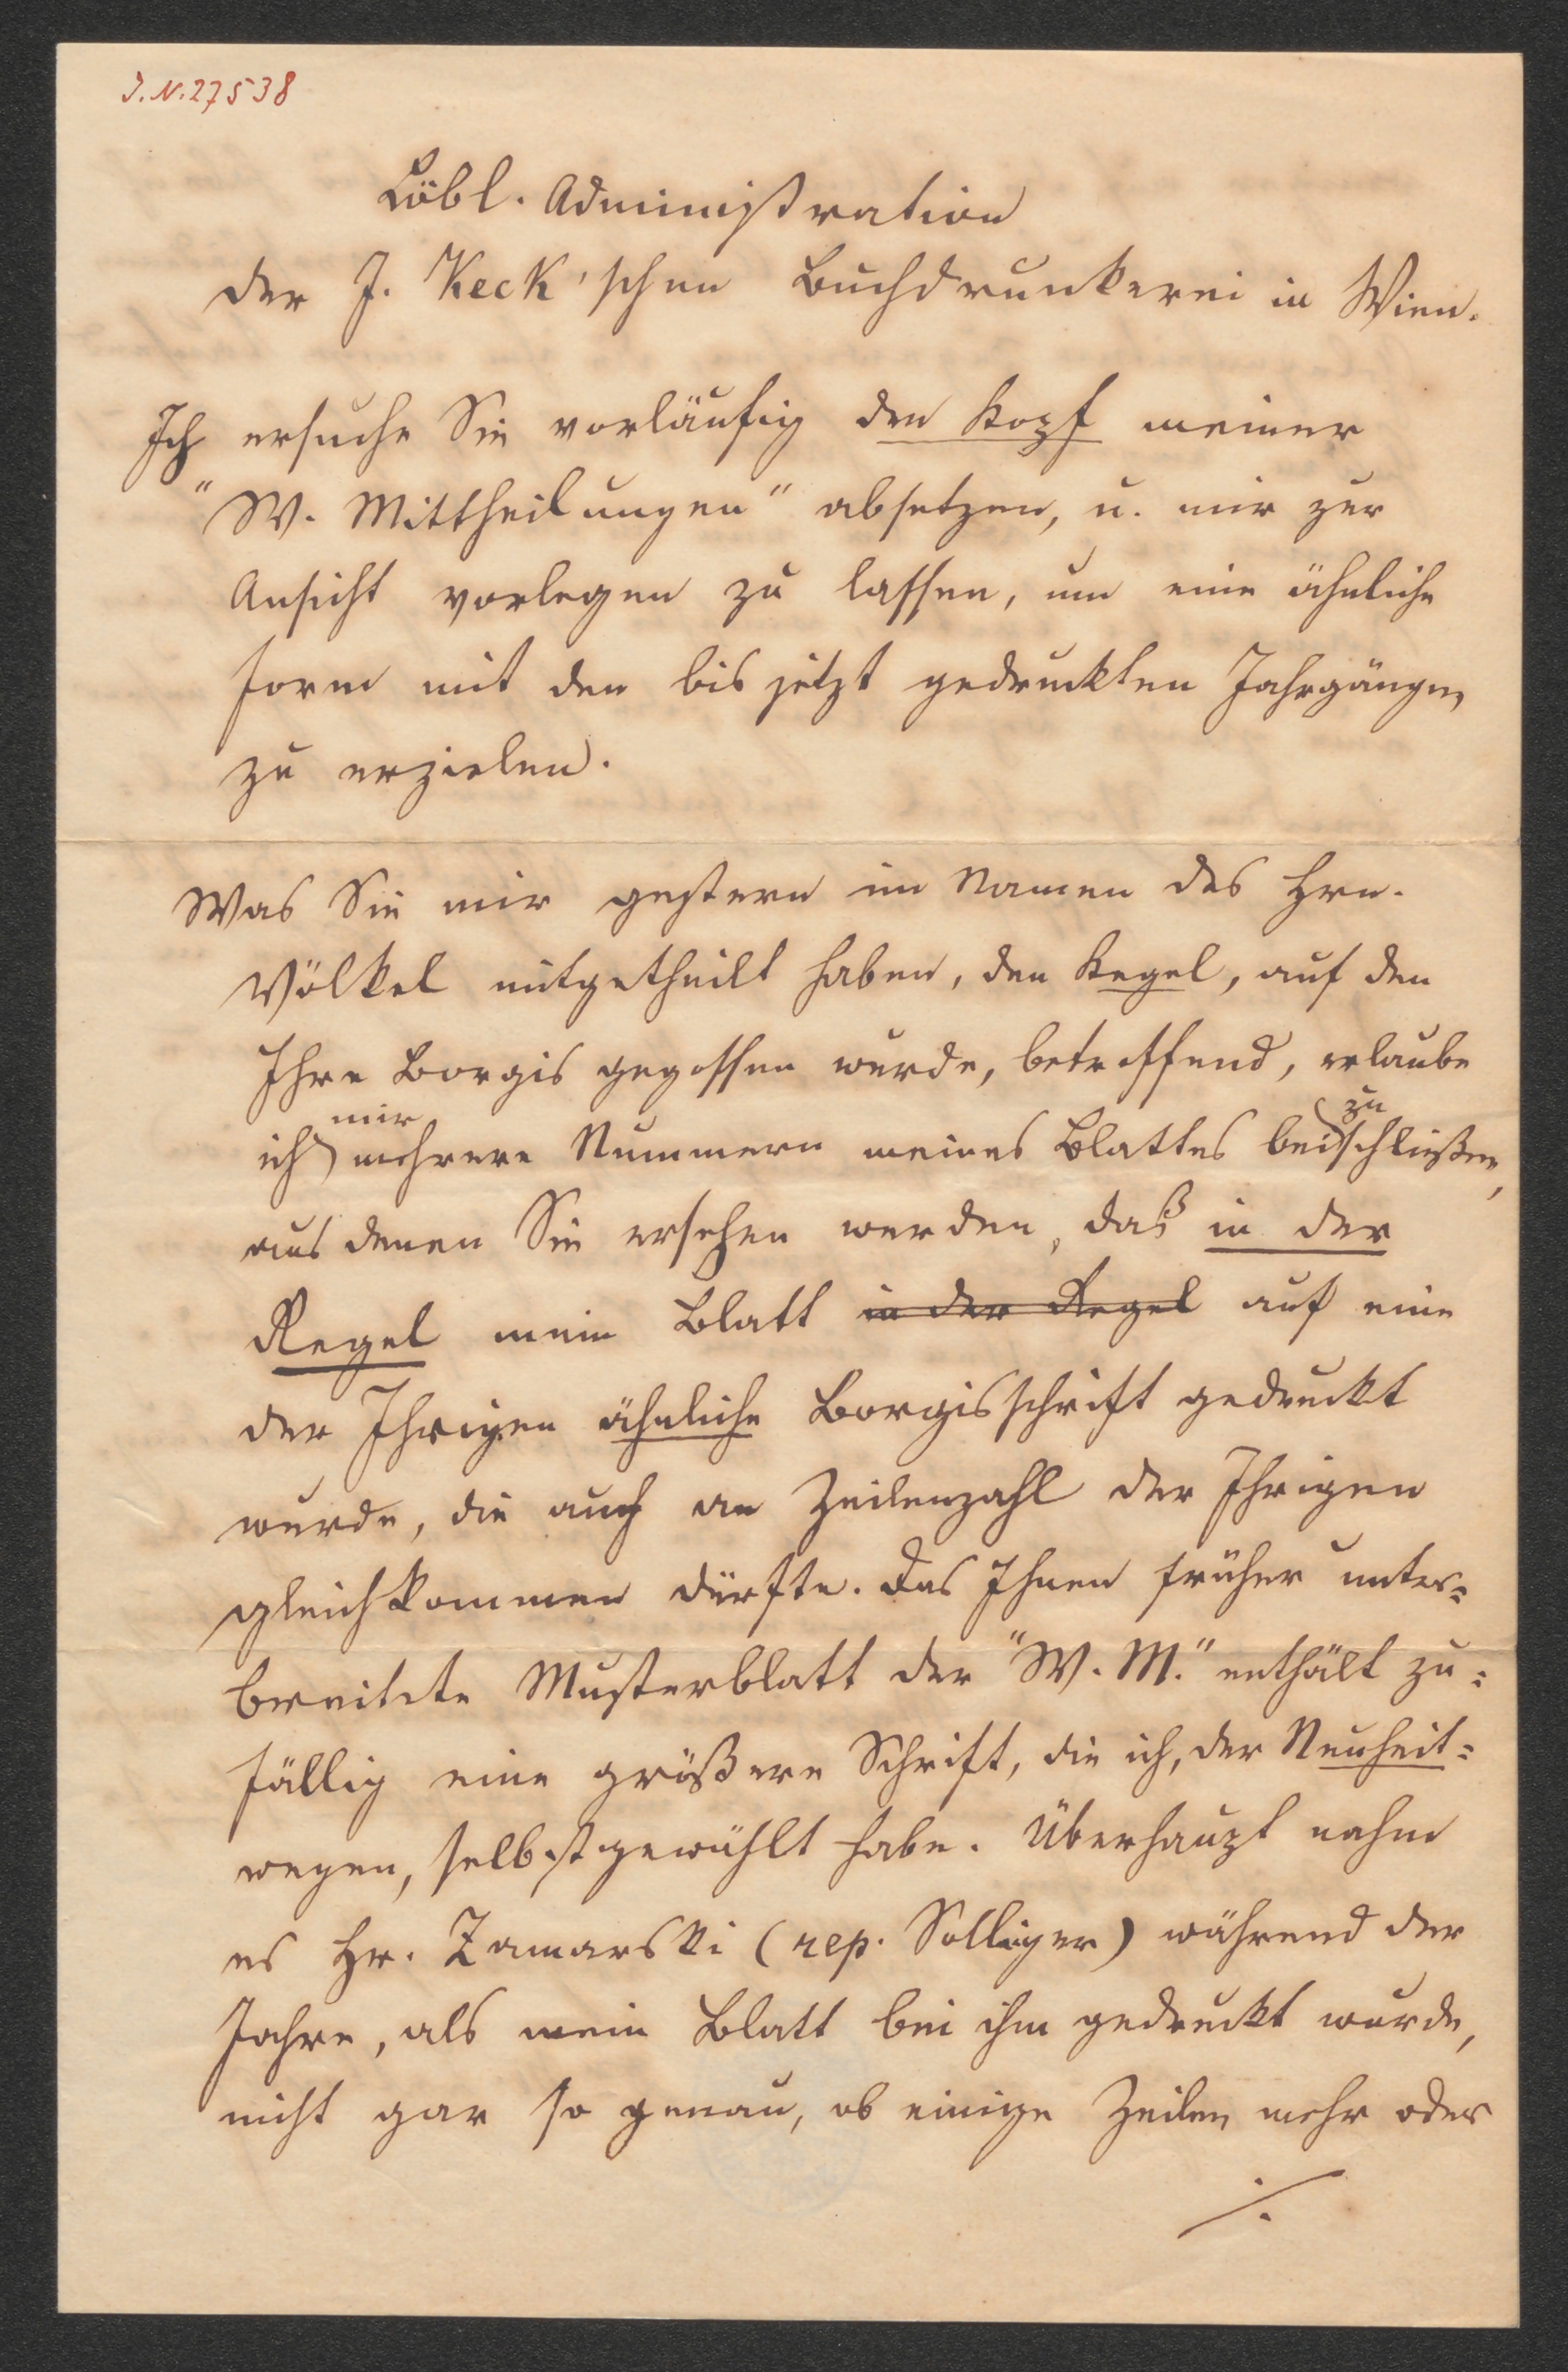 J.N. 27538
Löbl. Administration
der J. Keck'schen Buchdrunkerei in Wien.
Ich ersuche Sie vorläufig den Kopf meiner
"W. Mittheilungen" absetzen, u. mir zur
Ansicht vorlegen zu lassen, um eine ähnliche
Form mit den bis jetzt gedruckten Jahrgängen
zu erzielen.
Was Sie mir gestern im Namen des Hrn.
Völkel mitgetheilt haben, den Kegel, auf den
Ihre Borgis gegossen wurde, betreffend, erlaube
ich mir mehrere Nummern meines Blattes beizuschließen,
aus denen Sie ersehen werden, daß in der
Regel mein Blatt in der Regel auf eine
der Ihrigen ähnliche Borgisschrift gedruckt
wurde, die auch an Zeilenzahl der Ihrigen
gleichkommen dürfte. Das Ihnen früher unter=
breitete Musterblatt der "W. M." enthält zu=
fällig eine größere Schrift, die ich, der Neuheit=
wegen, selbst gewählt habe. Überhaupt nahm
es Hr. Zamarski (rep. Sollinger) während der
Jahre, als mein Blatt bei ihm gedruckt wurde,
nicht gar so genau, ob einige Zeilen mehr oder
./.